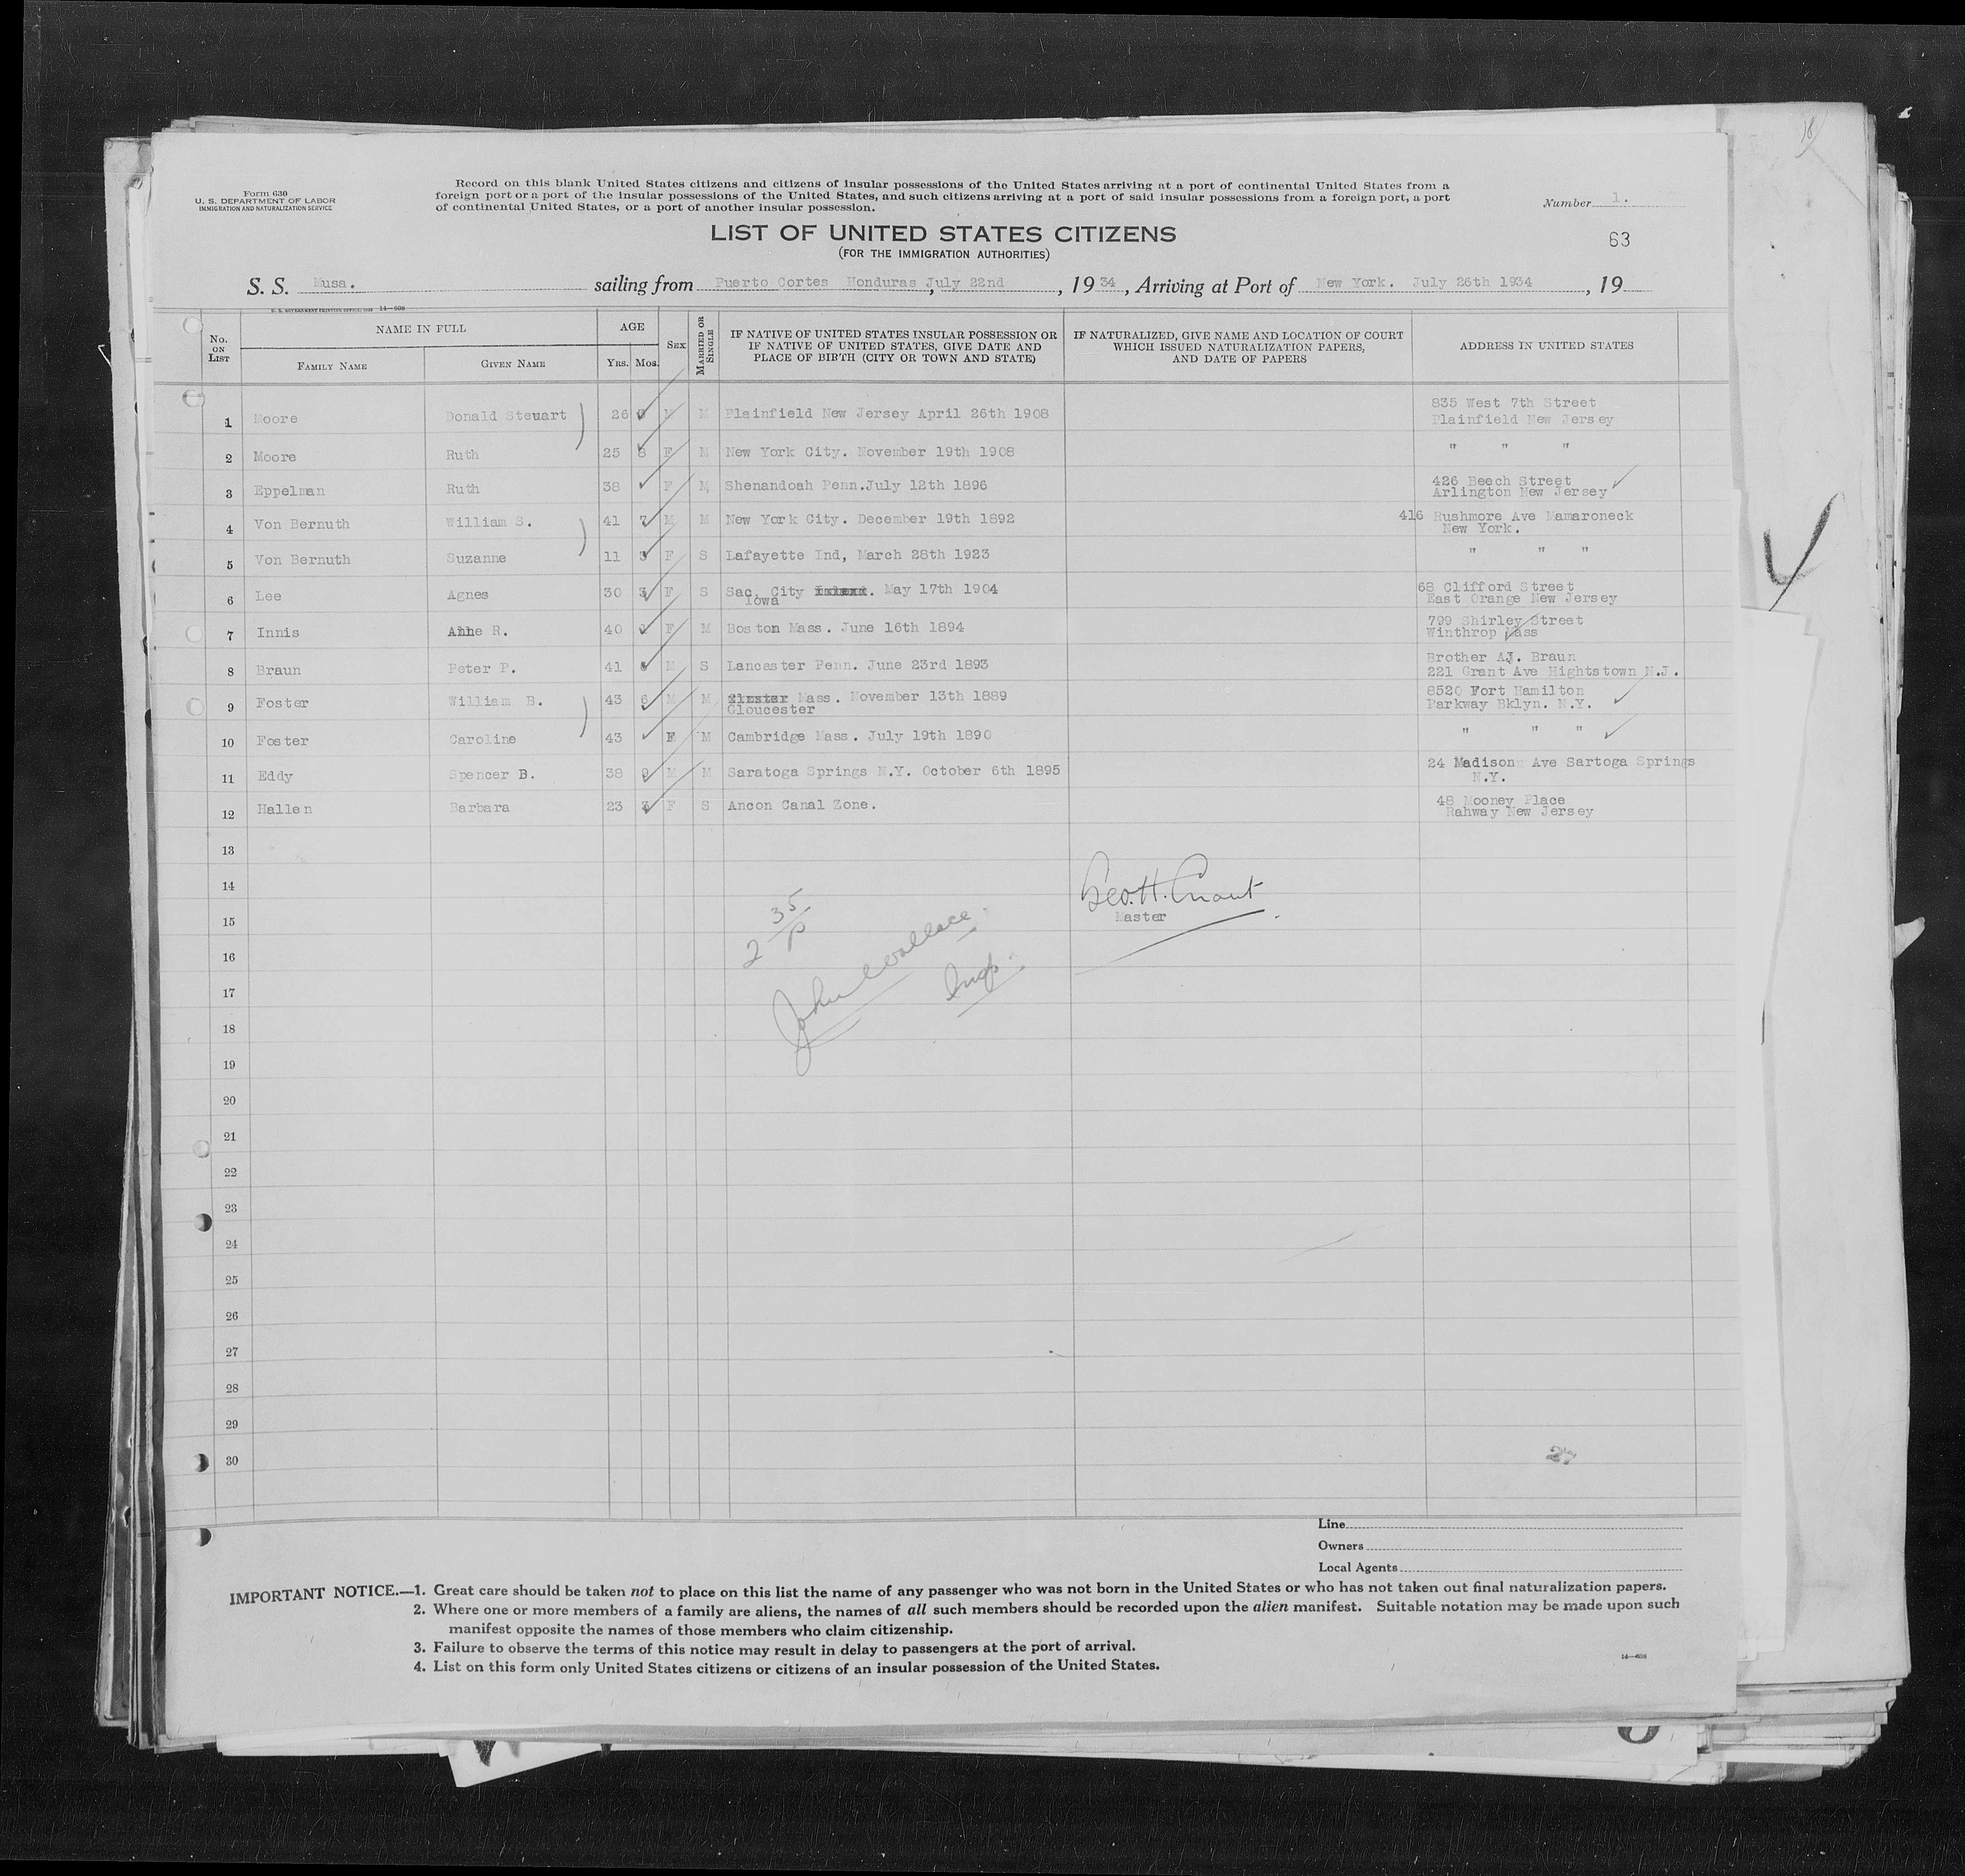 Form 630
U. S. DEPARTMENT OF LABOR
IMMIGRATION AND NATURALIZATION SERVICE
Record on this blank United States citizens and citizens of insular possessions of the United States arriving at a port of continental United States from a
foreign port or a port of the insular possessions of the United States, and such citizens arriving at a port of said insular possessions from a foreign port, a port
of continental United States, or a port of another insular possession.
Number 1.
LIST OF UNITED STATES CITIZENS
(FOR THE IMMIGRATION AUTHORITIES)
63
S. S. Musa. sailing from Puerto Cortes Honduras, July 22nd, 1934, Arriving at Port of New York. July 26th 1934, 19
14—608
No. ON LIST
NAME IN FULL
FAMILY NAME
GIVEN NAME
AGE
YRS. MOS.
SEX
MARRIED OR SINGLE
IF NATIVE OF UNITED STATES INSULAR POSSESSION OR
IF NATIVE OF UNITED STATES, GIVE DATE AND
PLACE OF BIRTH (CITY OR TOWN AND STATE)
IF NATURALIZED, GIVE NAME AND LOCATION OF COURT
WHICH ISSUED NATURALIZATION PAPERS,
AND DATE OF PAPERS
ADDRESS IN UNITED STATES
1 Moore Donald Steuart 26 M M Plainfield New Jersey April 26th 1908 835 West 7th Street
Plainfield New Jersey
2 Moore Ruth 25 8 F M New York City. November 19th 1908 " " "
3 Eppelman Ruth 38 F M Shenandoah Penn.July 12th 1896 426 Beech Street
Arlington New Jersey
4 Von Bernuth William S. 41 7 M M New York City. December 19th 1892 416 Rushmore Ave Mamaroneck
New York.
5 Von Bernuth Suzanne 11 3 F S Lafayette Ind, March 28th 1923 " " "
6 Lee Agnes 30 F S Sac. City . May 17th 1904 68 Clifford Street
Iowa East Orange New Jersey
7 Innis Anne R. 40 F M Boston Mass. June 16th 1894 799 Shirley Street
Winthrop Mass
8 Braun Peter P. 41 M S Lancaster Penn. June 23rd 1893 Brother AJ. Braun
221 Grant Ave Hightstown N.J.
9 Foster William B. 43 6 M M Mass. November 13th 1889 8520 Fort Hamilton
Gloucester Parkway Bklyn. N.Y.
10 Foster Caroline 43 F M Cambridge Mass. July 19th 1890 " " "
11 Eddy Spencer B. 38 9 M M Saratoga Springs N.Y. October 6th 1895 24 Madison Ave Sartoga Springs
N.Y.
12 Hallen Barbara 23 F S Ancon Canal Zone. 48 Mooney Place
Rahway New Jersey
13
14
Geo. H. Grant
15
Master
2 35/p
John Wallace
16
Insp.
17
18
19
20
21
22
23
24
25
26
27
28
29
30
27
Line
Owners
Local Agents
IMPORTANT NOTICE.—1. Great care should be taken not to place on this list the name of any passenger who was not born in the United States or who has not taken out final naturalization papers.
2. Where one or more members of a family are aliens, the names of all such members should be recorded upon the alien manifest. Suitable notation may be made upon such
manifest opposite the names of those members who claim citizenship.
3. Failure to observe the terms of this notice may result in delay to passengers at the port of arrival.
4. List on this form only United States citizens or citizens of an insular possession of the United States.
14—608